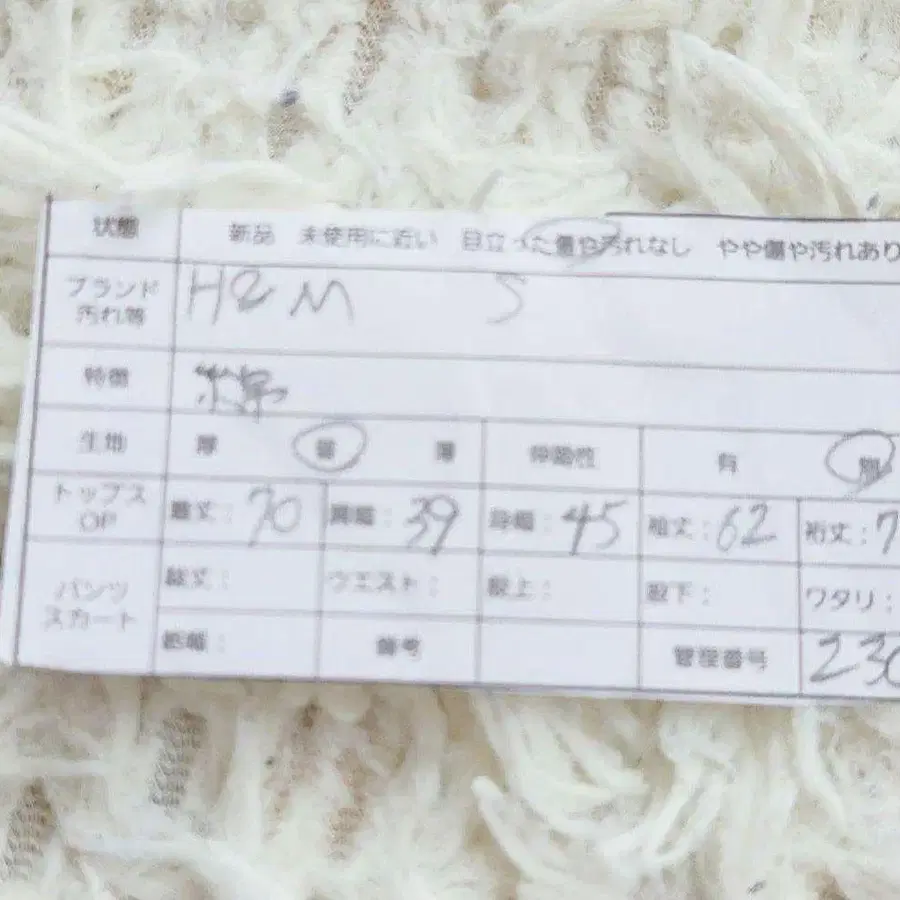 状態 新品 未使用に近い 目立った傷や汚れなし やや傷や汚れあり
ブランド 汚れ等 H&M S
特徴
生地 厚 普 薄 伸縮性 有 無
トップス OP 着丈: 70 肩幅: 39 身幅: 45 袖丈: 62 裄丈: 7
パンツ スカート 総丈: ウエスト: 股上: 股下: ワタリ:
裾幅: 備考 管理番号 230